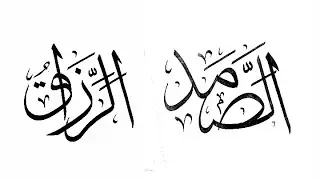 الصَّمَد
الرَّزَّاقُ